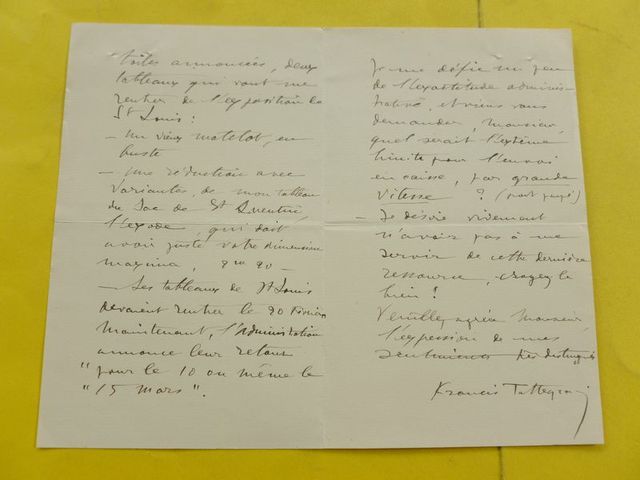 toiles annoncées, deux
tableaux qui vont me
rentrer de l'exposition de
St Louis :
— un vieux matelot, en
buste
— une réduction avec
variantes, de mon tableau
du Sac de St Quentin,
l'exode, qui doit
avoir juste votre dimension
maxima, 2m 90 —
— Les tableaux de St Louis
devaient rentrer le 20 Février
Maintenant, l'Administration
annonce leur retour
"pour le 10 ou même le
"15 mars".
Je me défie un peu
de l'exactitude adminis-
trative, et viens vous
demander, Monsieur,
quel serait l'extrême
limite pour l'envoi
en caisse, par grande
vitesse ? (port payé)
— Je désire vivement
n'avoir pas à me
servir de cette dernière
ressource, croyez le
bien !
Veuillez agréer, Monsieur,
l'expression de mes
sentiments très distingués
Francis Tattegrain